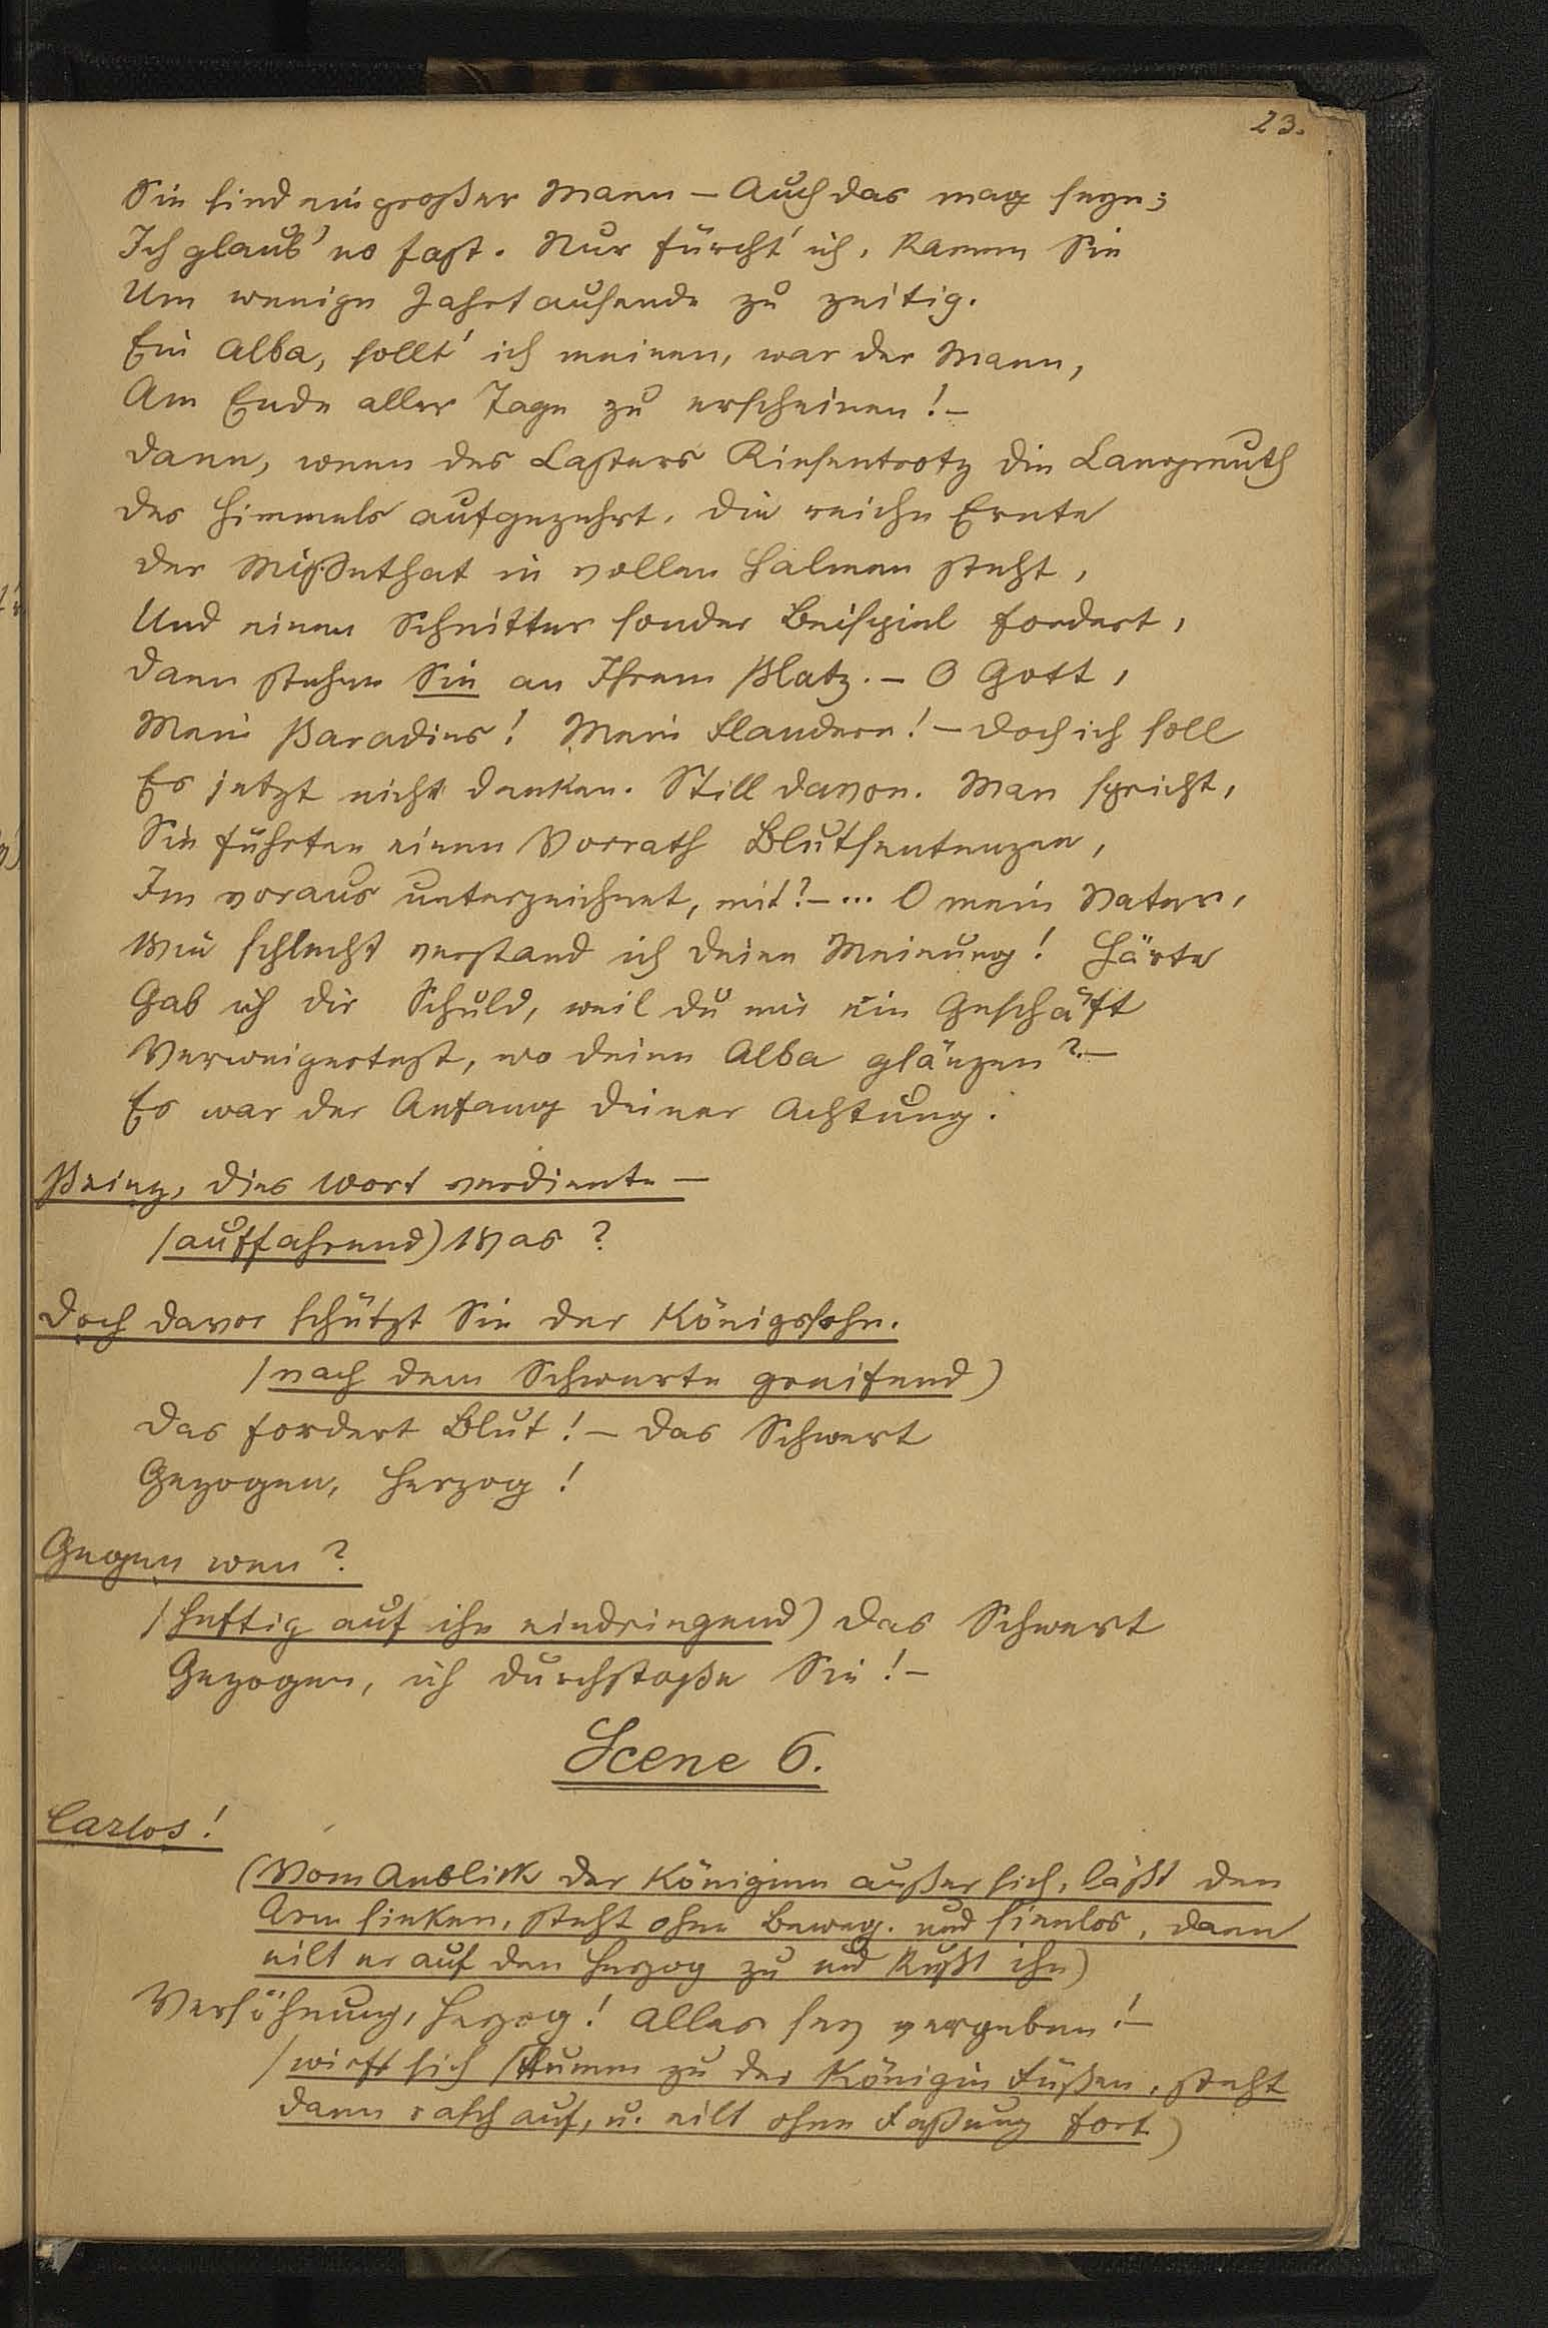 23.
Sie sind ein großer Mann – Auch das mag seyn;
Ich glaub' es fast. Nur fürcht' ich, kamen Sie
Um wenige Jahrtausende zu zeitig.
Ein Alba, sollt' ich meinen, war der Mann,
Am Ende aller Tage zu erscheinen! –
Dann, wenn des Lasters Riesentrotz die Langmuth
Des Himmels aufgezehrt, die reiche Ernte
Der Missethat in vollen Halmen steht,
Und einen Schnitter sonder Beispiel fordert,
Dann stehen Sie an Ihrem Platz. – O Gott,
Mein Paradies! Mein Flandern! – Doch ich soll
Es jetzt nicht denken. Still davon. Man spricht,
Sie führten einen Vorrath Blutsentenzen,
Im voraus unterzeichnet, mit? – ... O mein Vater,
Wie schlecht verstand ich deine Meinung! Härte
Gab ich dir Schuld, weil du mir ein Geschäft
Verweigertest, wo deine Alba glänzen? –
Es war der Anfang deiner Achtung.
Prinz, dies Wort verdiente –
(auffahrend) Was?
Doch davor schützt Sie der Königssohn.
(nach dem Schwerte greifend)
Das fordert Blut! – Das Schwert
Gezogen, Herzog!
Gegen wen?
(heftig auf ihn eindringend) Das Schwert
Gezogen, ich durchstoße Sie! –
Scene 6.
Carlos!
(Vom Anblick der Königinn außer sich, läßt den
Arm sinken, steht ohne Beweg. und sinnlos, dann
eilt er auf den Herzog zu und küßt ihn)
Versöhnung, Herzog! Alles sey vergeben! –
(wirft sich stumm zu der Königin Füßen, steht
dann rasch auf, u. eilt ohne Faßung fort)